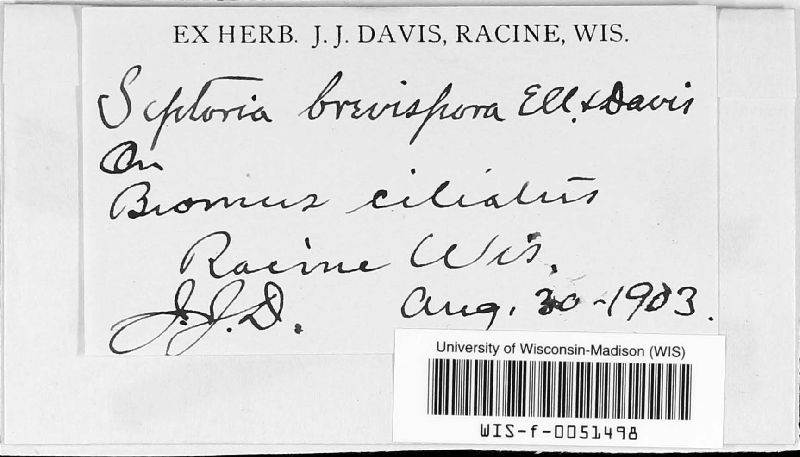 EX HERB. J. J. DAVIS, RACINE, WIS.
Septoria brevispora Ell. & Davis
On
Bromus ciliatus
Racine Wis.
J.J.D. Aug. 30-1903.
University of Wisconsin-Madison (WIS)
WIS-f-0051498